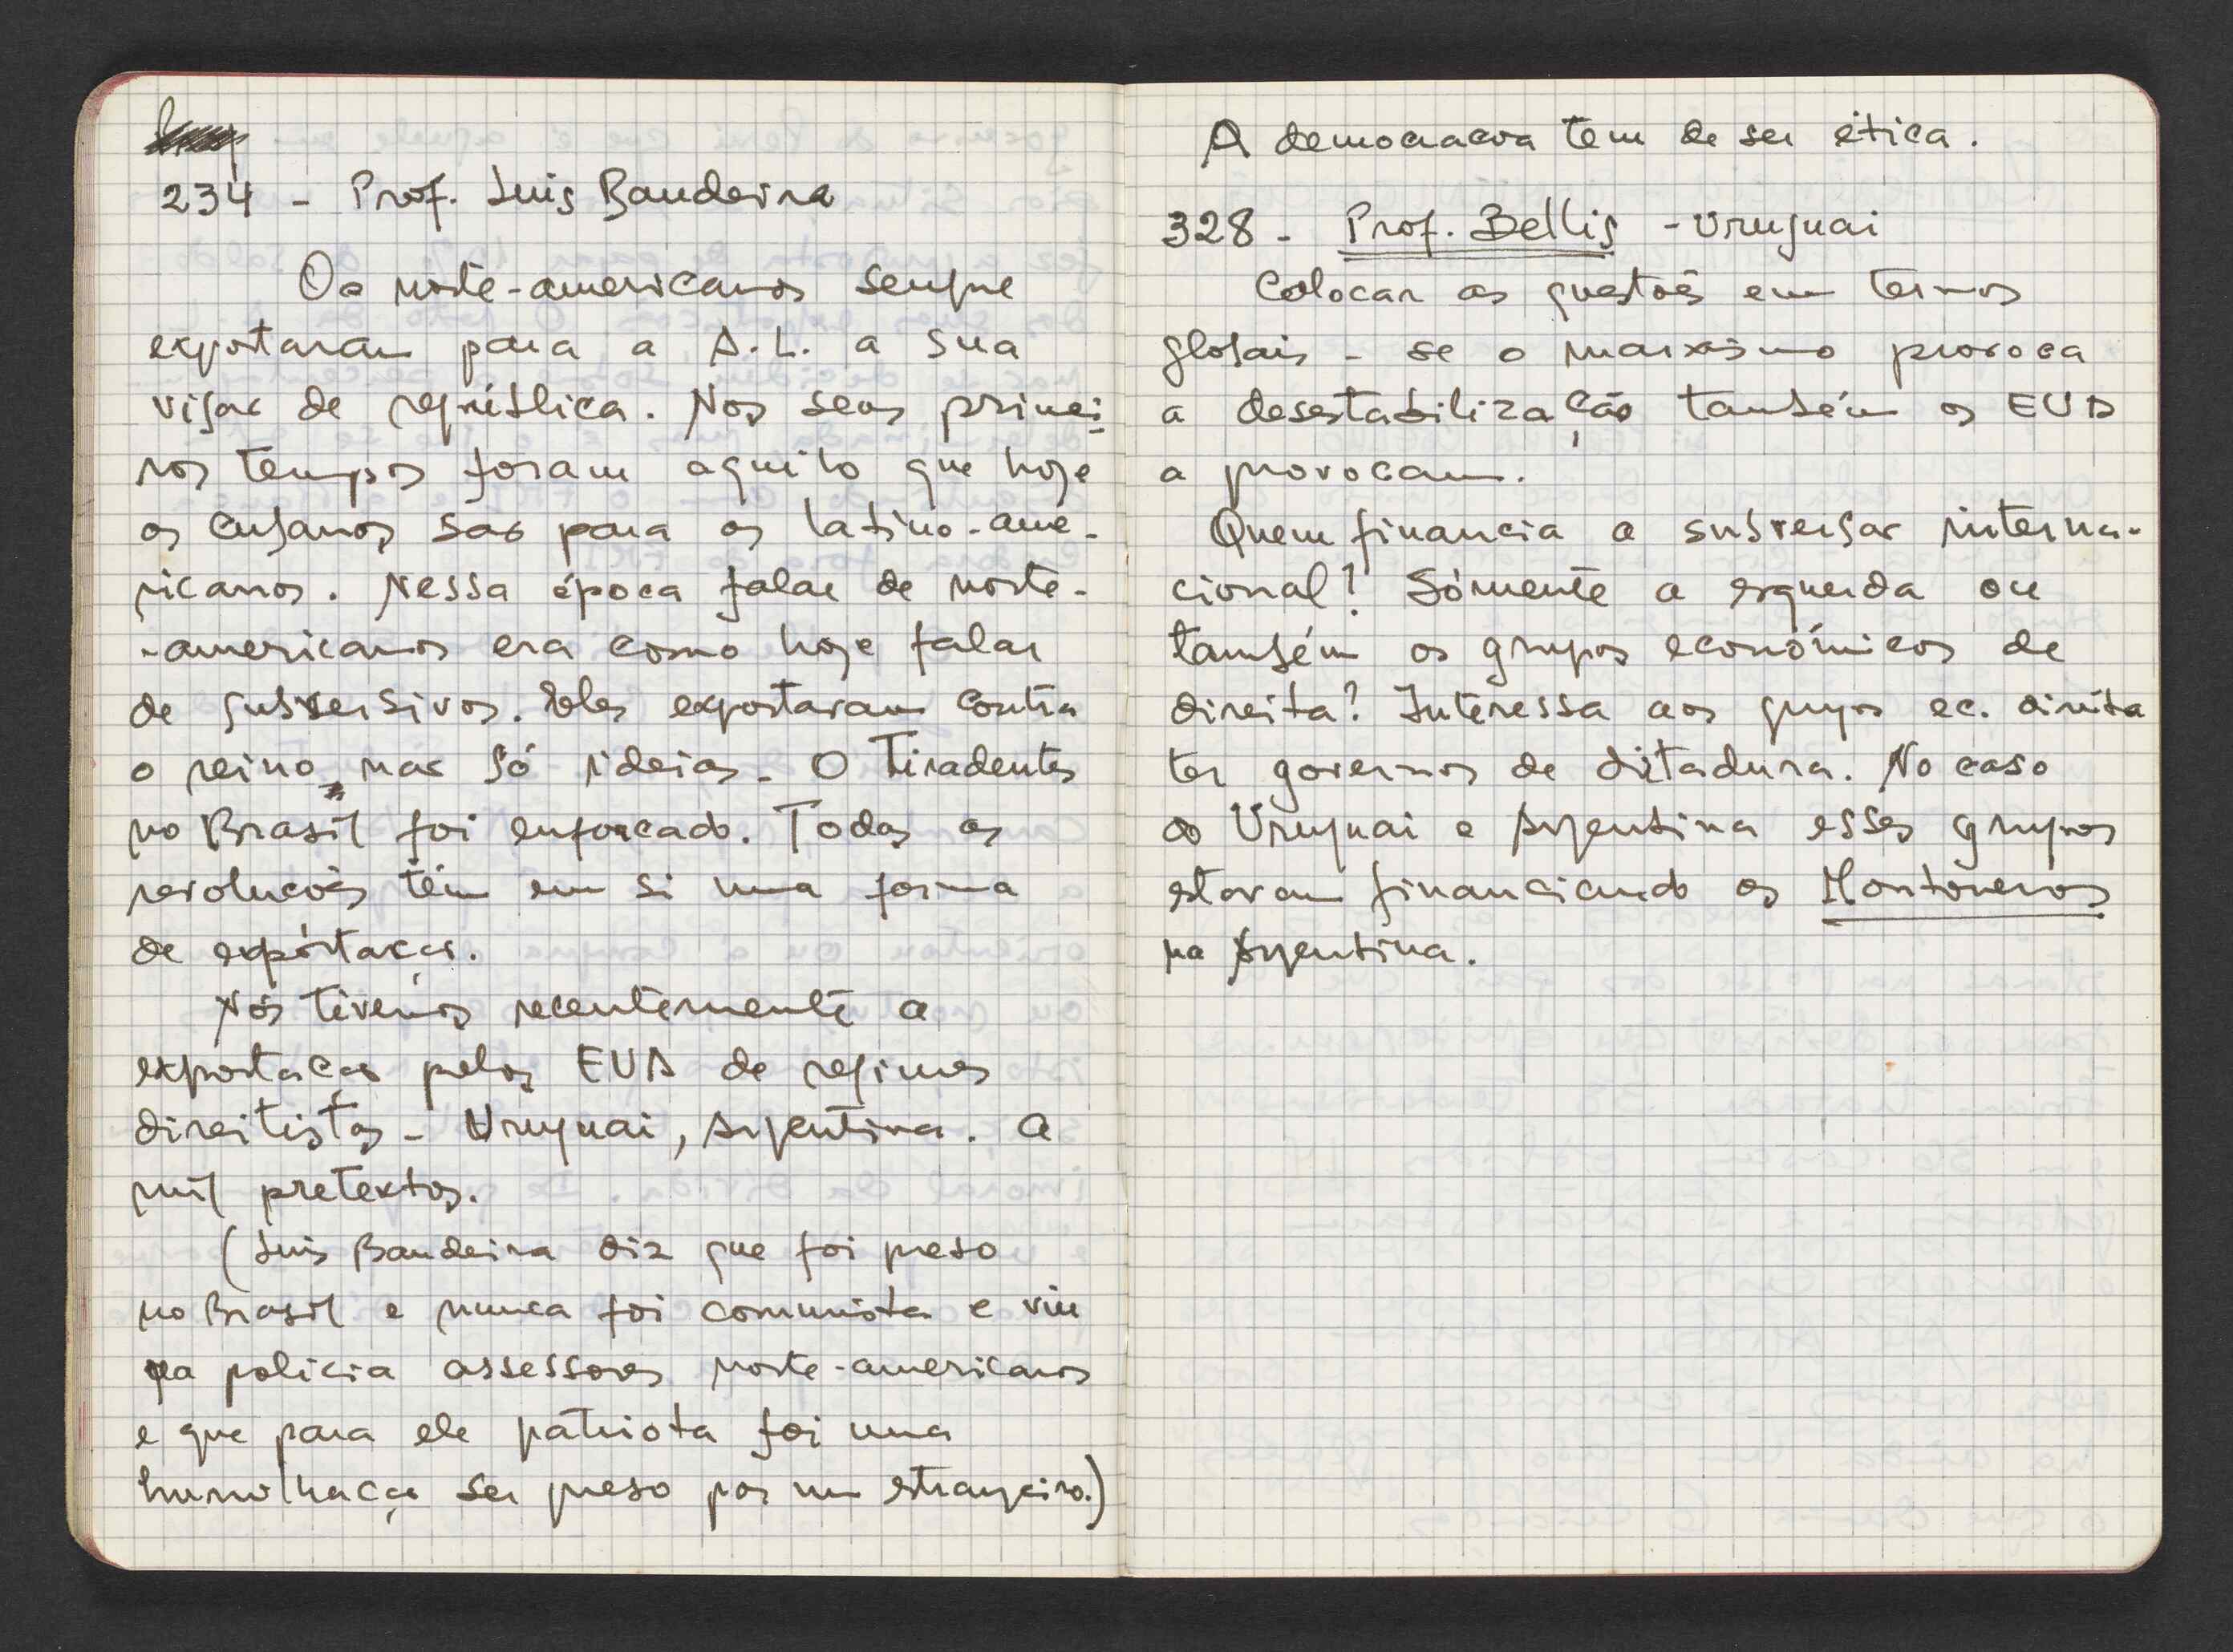 234 - Prof. Luis Bandeira
Os norte-americanos sempre
exportaram para a A.L. a sua
visão de república. Nos seus primei-
ros tempos foram aquilo que hoje
os cubanos são para os latino-ame-
ricanos. Nessa época falar de norte-
-americanos era como hoje falar
de subversivos. Eles exportaram contra
o reino, não só ideias. O Tiradentes
no Brasil foi enforcado. Todas as
revoluções têm em si uma forma
de exportação.
Nós tivemos recentemente a
exportação pelos EUA de regimes
direitistas - Uruguai, Argentina. A
mil pretextos.
(Luis Bandeira diz que foi preso
no Brasil e nunca foi comunista e viu
na policia assessores norte-americanos
e que para ele patriota foi uma
humilhação ser preso por um estrangeiro.)
A democracia tem de ser ética.
328 - Prof. Bellis - Uruguai
Colocar as questões em termos
globais - se o marxismo provoca
a desestabilização também os EUA
a provocam.
Quem financia a subversão interna-
cional? Sómente a esquerda ou
também os grupos económicos de
direita? Interessa aos grupos ec. direita
ter governos de ditadura. No caso
do Uruguai e Argentina esses grupos
estavam financiando os Montoneros
na Argentina.